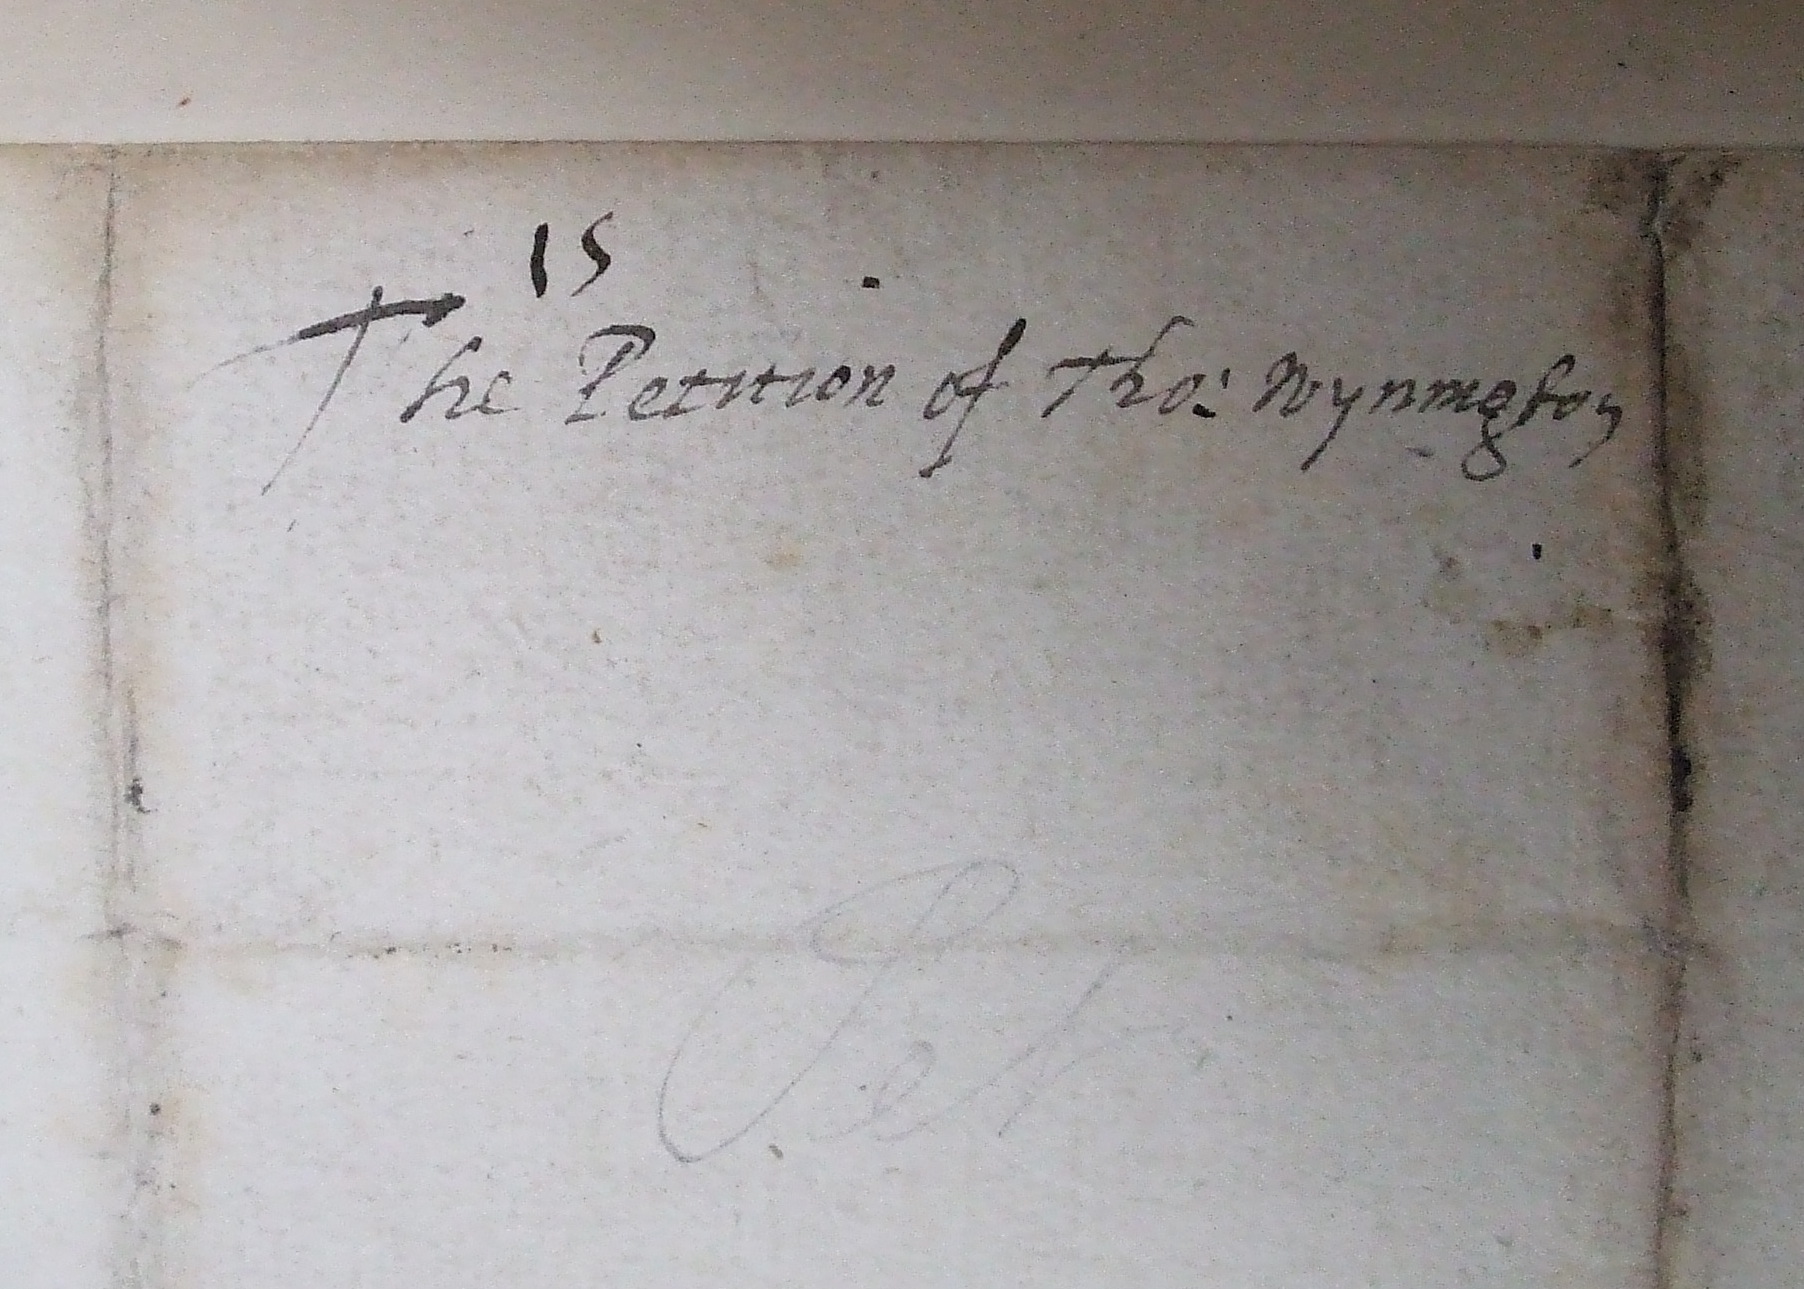 15
The Petition of Tho: Wynington
Pet